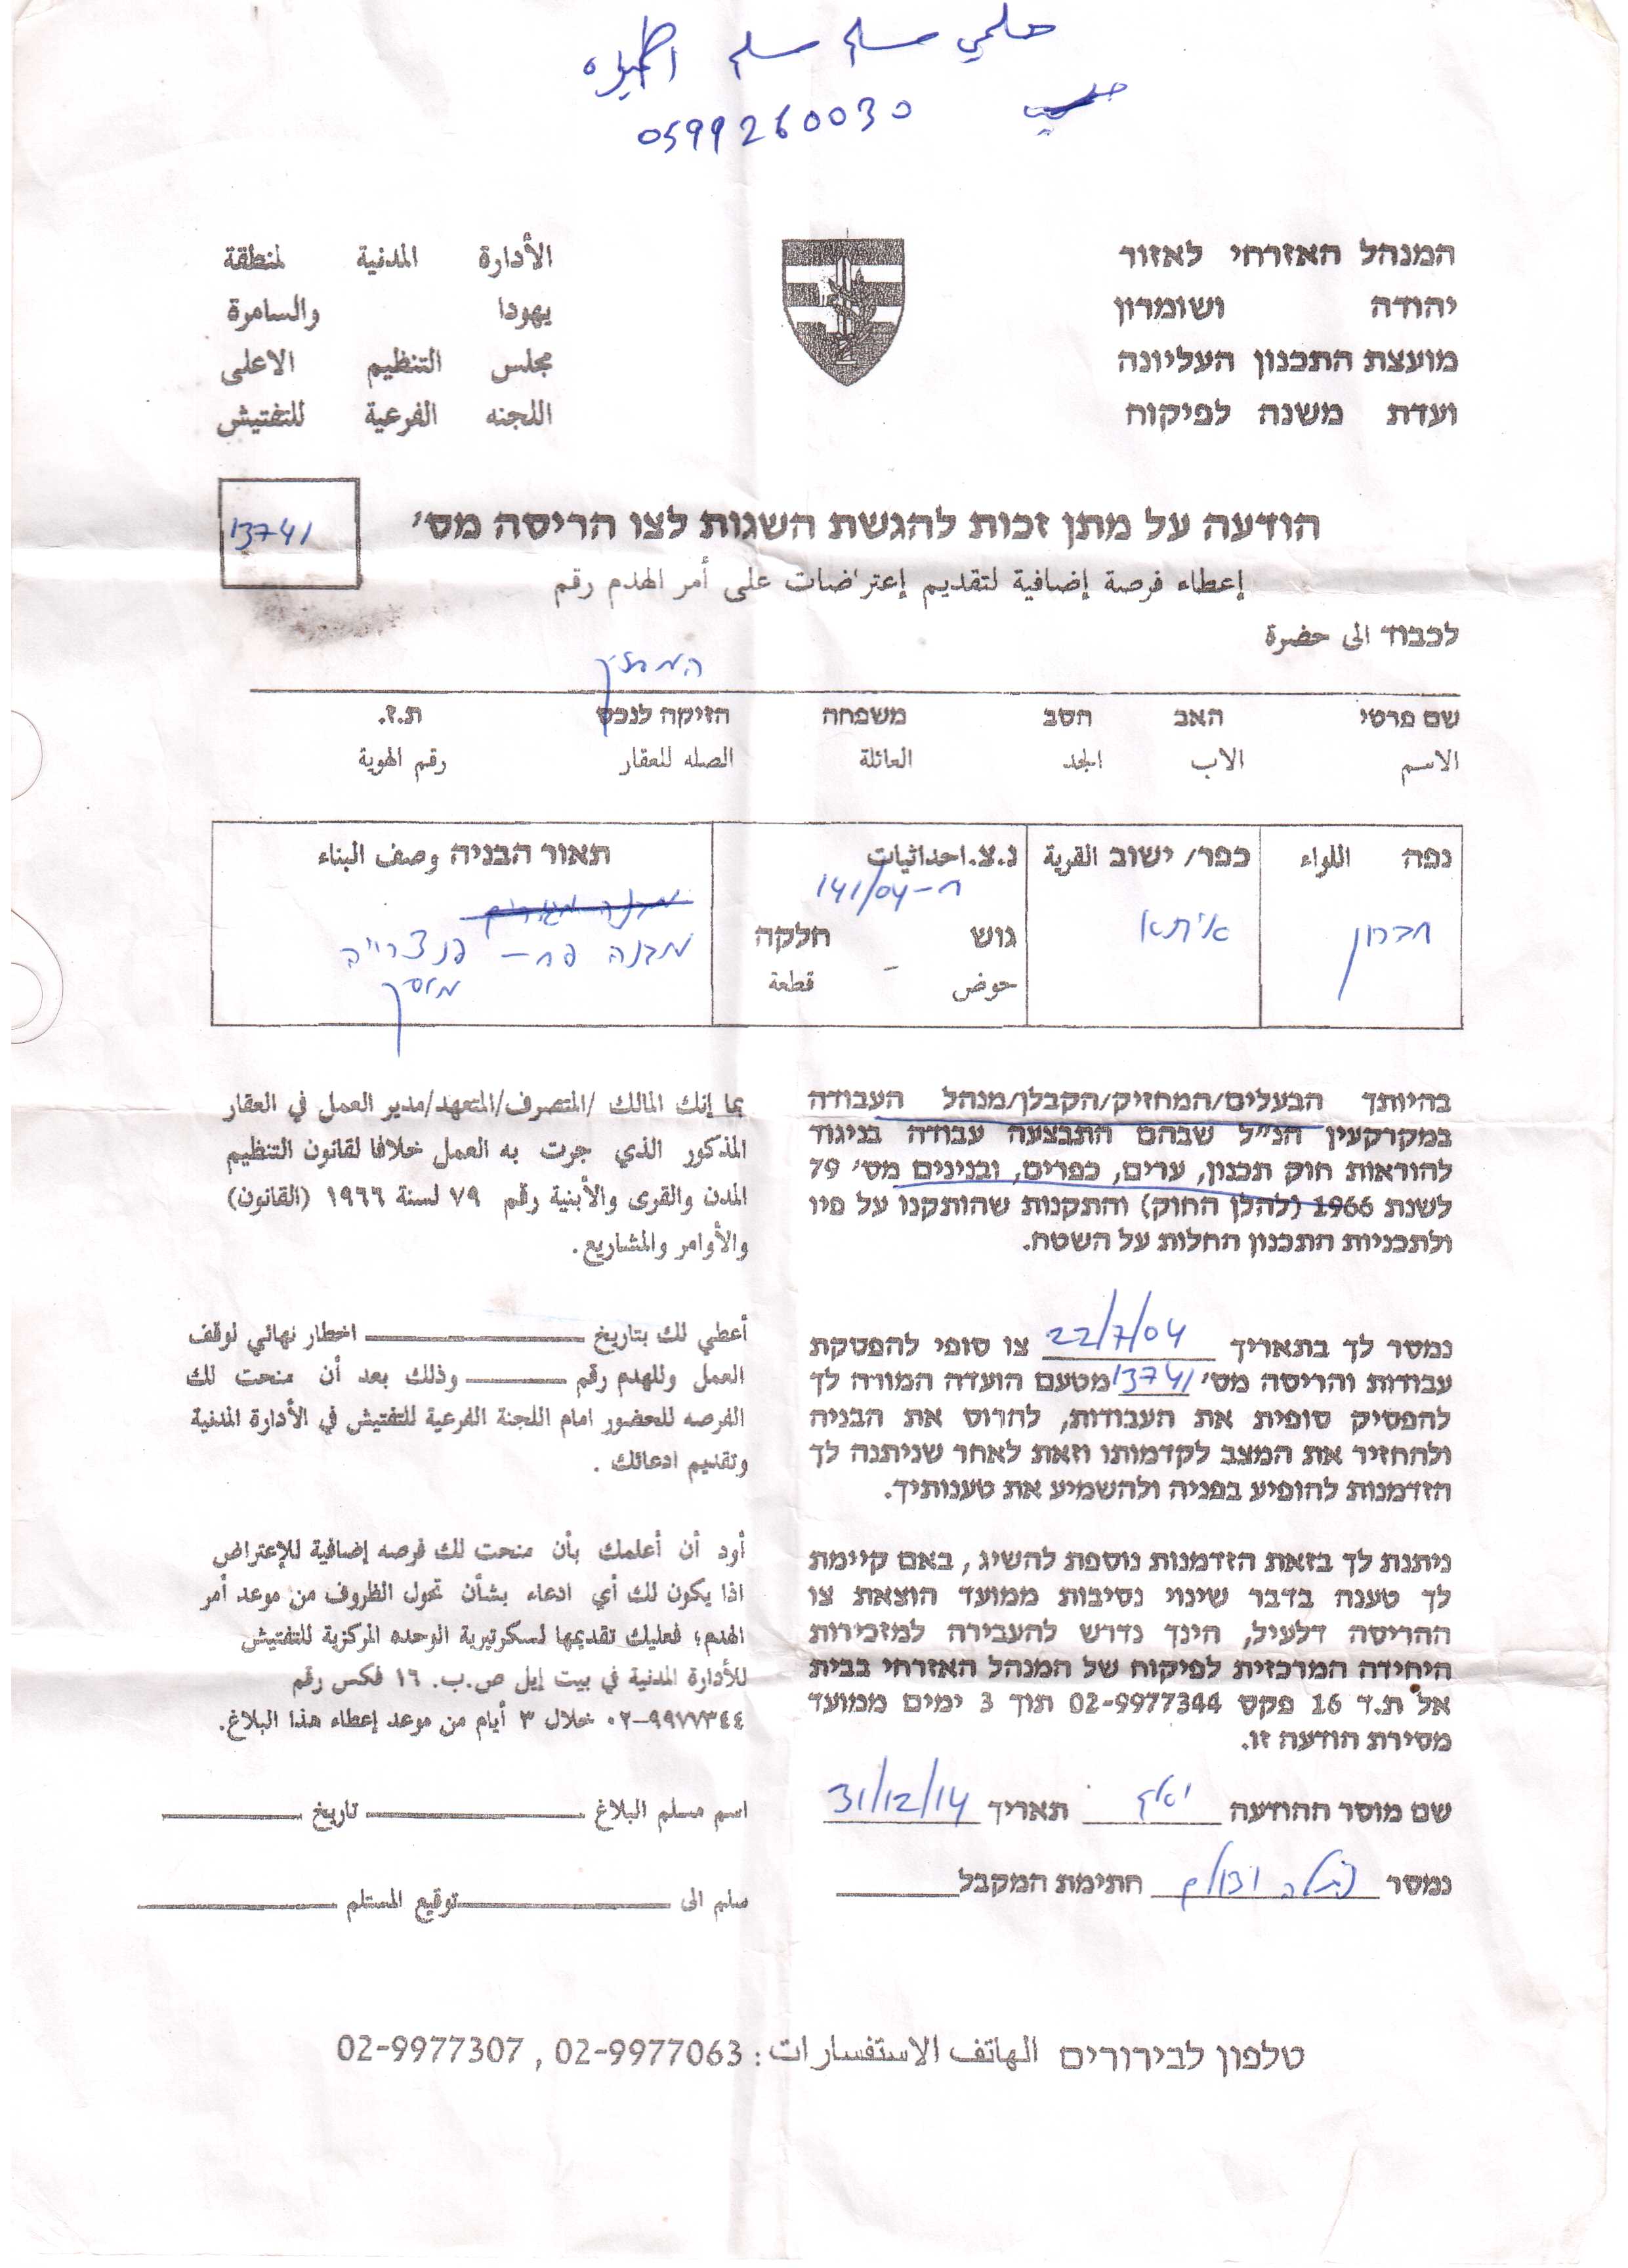 حلمي مسلم مسلم
0599260030
המנהל האזרחי לאזור
יהודה ושומרון
מועצת התכנון העליונה
ועדת משנה לפיקוח
الأدارة المدنية لمنطقة
يهودا والسامرة
مجلس التنظيم الاعلى
اللجنه الفرعية للتفتيش
הודעה על מתן זכות להגשת השגות לצו הריסה מס׳
13741
إعطاء فرصة إضافية لتقديم إعتراضات على أمر الهدم رقم
לכבוד الى حضرة
המחזיק
שם פרטי האב הסב משפחה הזיקה לנכס ת.ז.
الاسم الاب الجد العائلة الصله للعقار رقم الهوية
נפה اللواء כפר/ ישוב القرية נ.צ.احداثيات תאור הבניה وصف البناء
חברון
141/04-ח
גוש חלקה
حوض - قطعة
מבנה פח - פנצרייה
מוסך
בהיותך הבעלים/המחזיק/הקבלן/מנהל העבודה
במקרקעין הנ״ל שבהם התבצעה עבודה בניגוד
להוראות חוק תכנון, ערים, כפרים, ובנינים מס׳ 79
לשנת 1966 (להלן החוק) והתקנות שהותקנו על פיו
ולתכניות התכנון החלות על השטח.
بما إنك المالك /المتصرف/المتعهد/مدير العمل في العقار
المذكور الذي جرت به العمل خلافا لقانون التنظيم
المدن والقرى والأبنية رقم ٧٩ لسنة ١٩٦٦ (القانون)
والأوامر والمشاريع.
נמסר לך בתאריך 22/7/04 צו סופי להפסקת
עבודות והריסה מס׳ 13741 מטעם הועדה המורה לך
להפסיק סופית את העבודות, להרוס את הבניה
ולהחזיר את המצב לקדמותו וזאת לאחר שניתנה לך
הזדמנות להופיע בפניה ולהשמיע את טענותיך.
أعطي لك بتاريخ ــــــــ اخطار نهائي لوقف
العمل وللهدم رقم ــــــــ وذلك بعد أن منحت لك
الفرصه للحضور امام اللجنة الفرعية للتفتيش في الأدارة المدنية
وتقديم ادعائك .
ניתנת לך בזאת הזדמנות נוספת להשיג , באם קיימת
לך טענה בדבר שינוי נסיבות ממועד הוצאת צו
ההריסה דלעיל, הינך נדרש להעבירה למזכירות
היחידה המרכזית לפיקוח של המנהל האזרחי בבית
אל ת.ד 16 פקס 02-9977344 תוך 3 ימים ממועד
מסירת הודעה זו.
أود أن أعلمك بأن منحت لك فرصه إضافية للإعتراض
اذا يكون لك أي ادعاء بشأن تحول الظروف من موعد أمر
الهدم؛ فعليك تقديمها لسكرتيرية الوحده المركزية للتفتيش
للأدارة المدنية في بيت إيل ص.ب. ١٦ فكس رقم
٠٢-٩٩٧٧٣٤٤ خلال ٣ أيام من موعد إعطاء هذا البلاغ.
שם מוסר ההודעה תאריך 31/12/14
اسم مسلم البلاغ ــــــــ تاريخ ــــــــ
נמסר חתימת המקבל________
سلم الى ــــــــ توقيع المستلم ــــــــ
טלפון לבירורים الهاتف الاستفسارات: 02-9977063 , 02-9977307